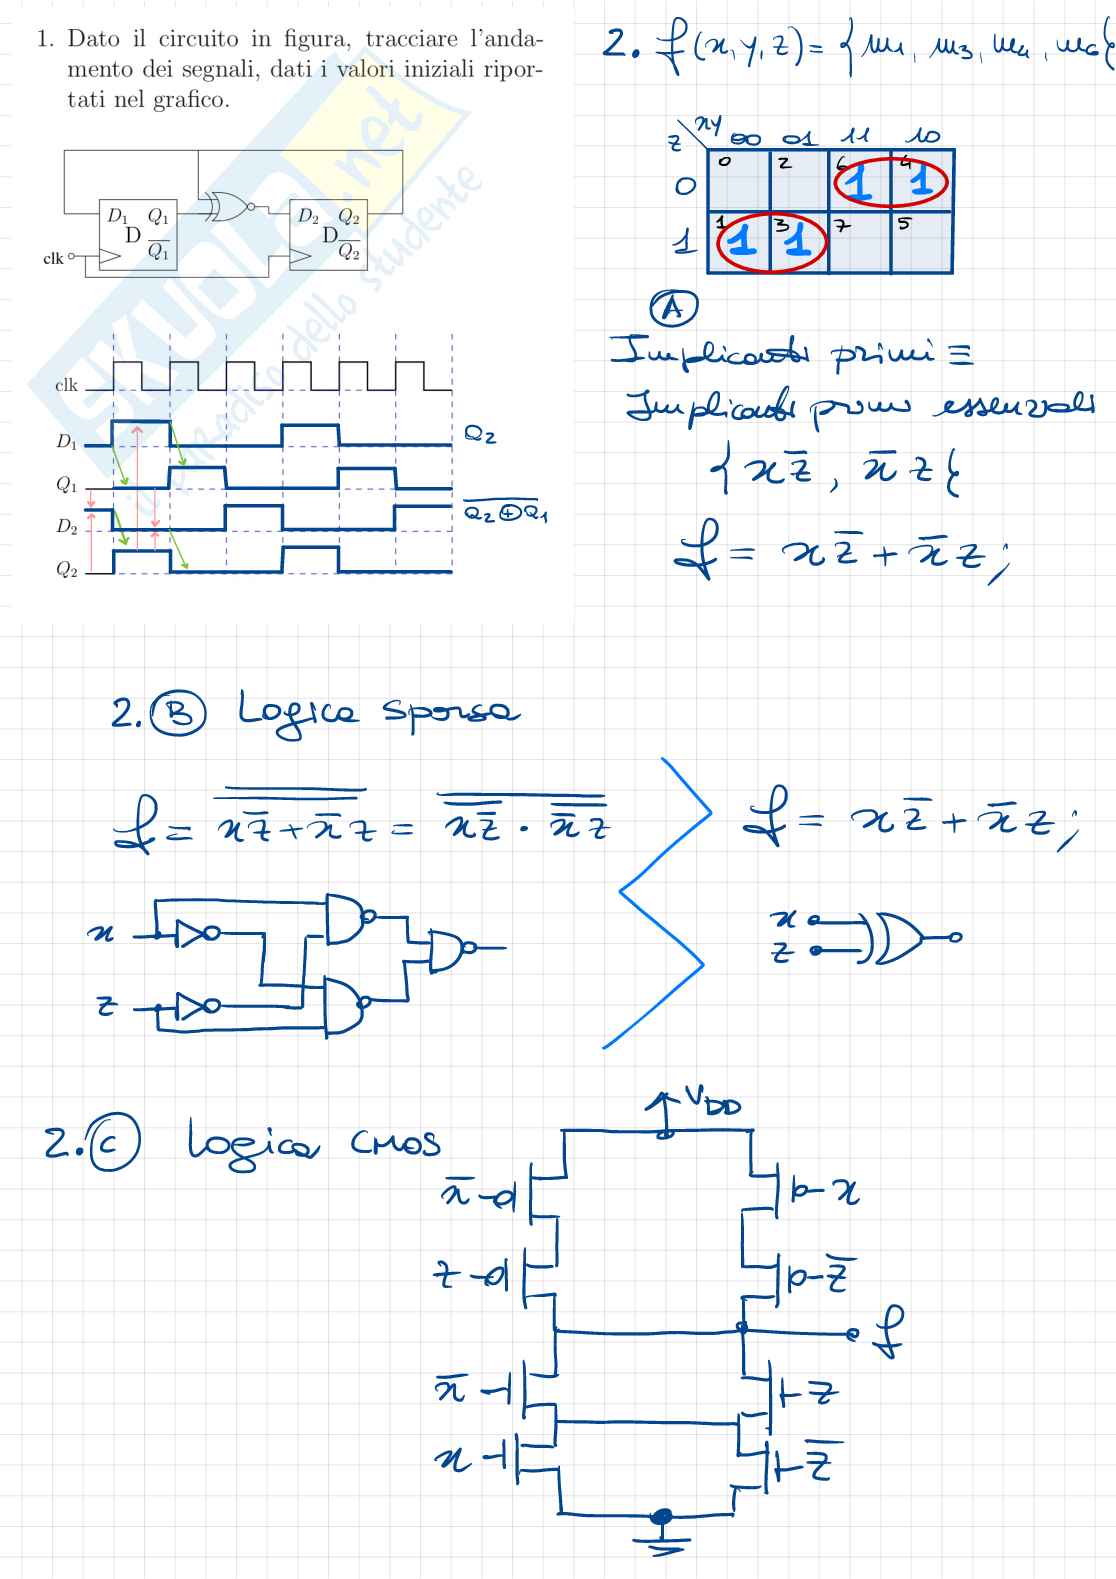 1. Dato il circuito in figura, tracciare l'anda-
mento dei segnali, dati i valori iniziali ripor-
tati nel grafico.
D₁ Q₁
D
Q̅₁
clk
D₂ Q₂
D
Q̅₂
SKUOLA.net
il paradiso dello studente
clk
D₁ Q₂
Q₁
D₂ \overline{Q₂⊕Q₁}
Q₂
2. f(x,y,z) = { m₁, m₃, m₄, m₆}
xy
z 00 01 11 10
0 0 2 6 1 4 1
1 1 1 3 1 7 5
A
Implicanti primi ≡
Implicanti primi essenziali
{ x z̅ , x̅ z }
f = x z̅ + x̅ z ;
2. B Logica sparsa
f = \overline{\overline{x z̅ + x̅ z}} = \overline{\overline{x z̅} · \overline{x̅ z}}
f = x z̅ + x̅ z ;
x
z
x
z
2. C Logica CMOS
V_DD
x̅ x
z z̅
f
x̅ z
x z̅